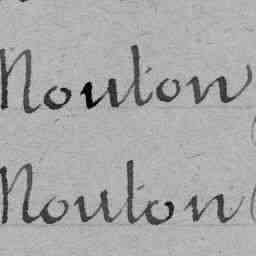 Mouton
Mouton